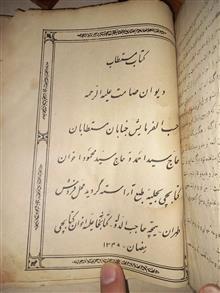 کتاب مستطاب
دیوان صامت علیه الرحمه
حسب الفرمایش جنابان مستطابان
حاج سید احمد و حاج سید محمود اخوان
کتابچی بحلیه طبع آراسته گردید محل فروش
طهران تیمچه حاجب الدوله کتابخانه اخوان کتابچی
رمضان ۱۳۴۸